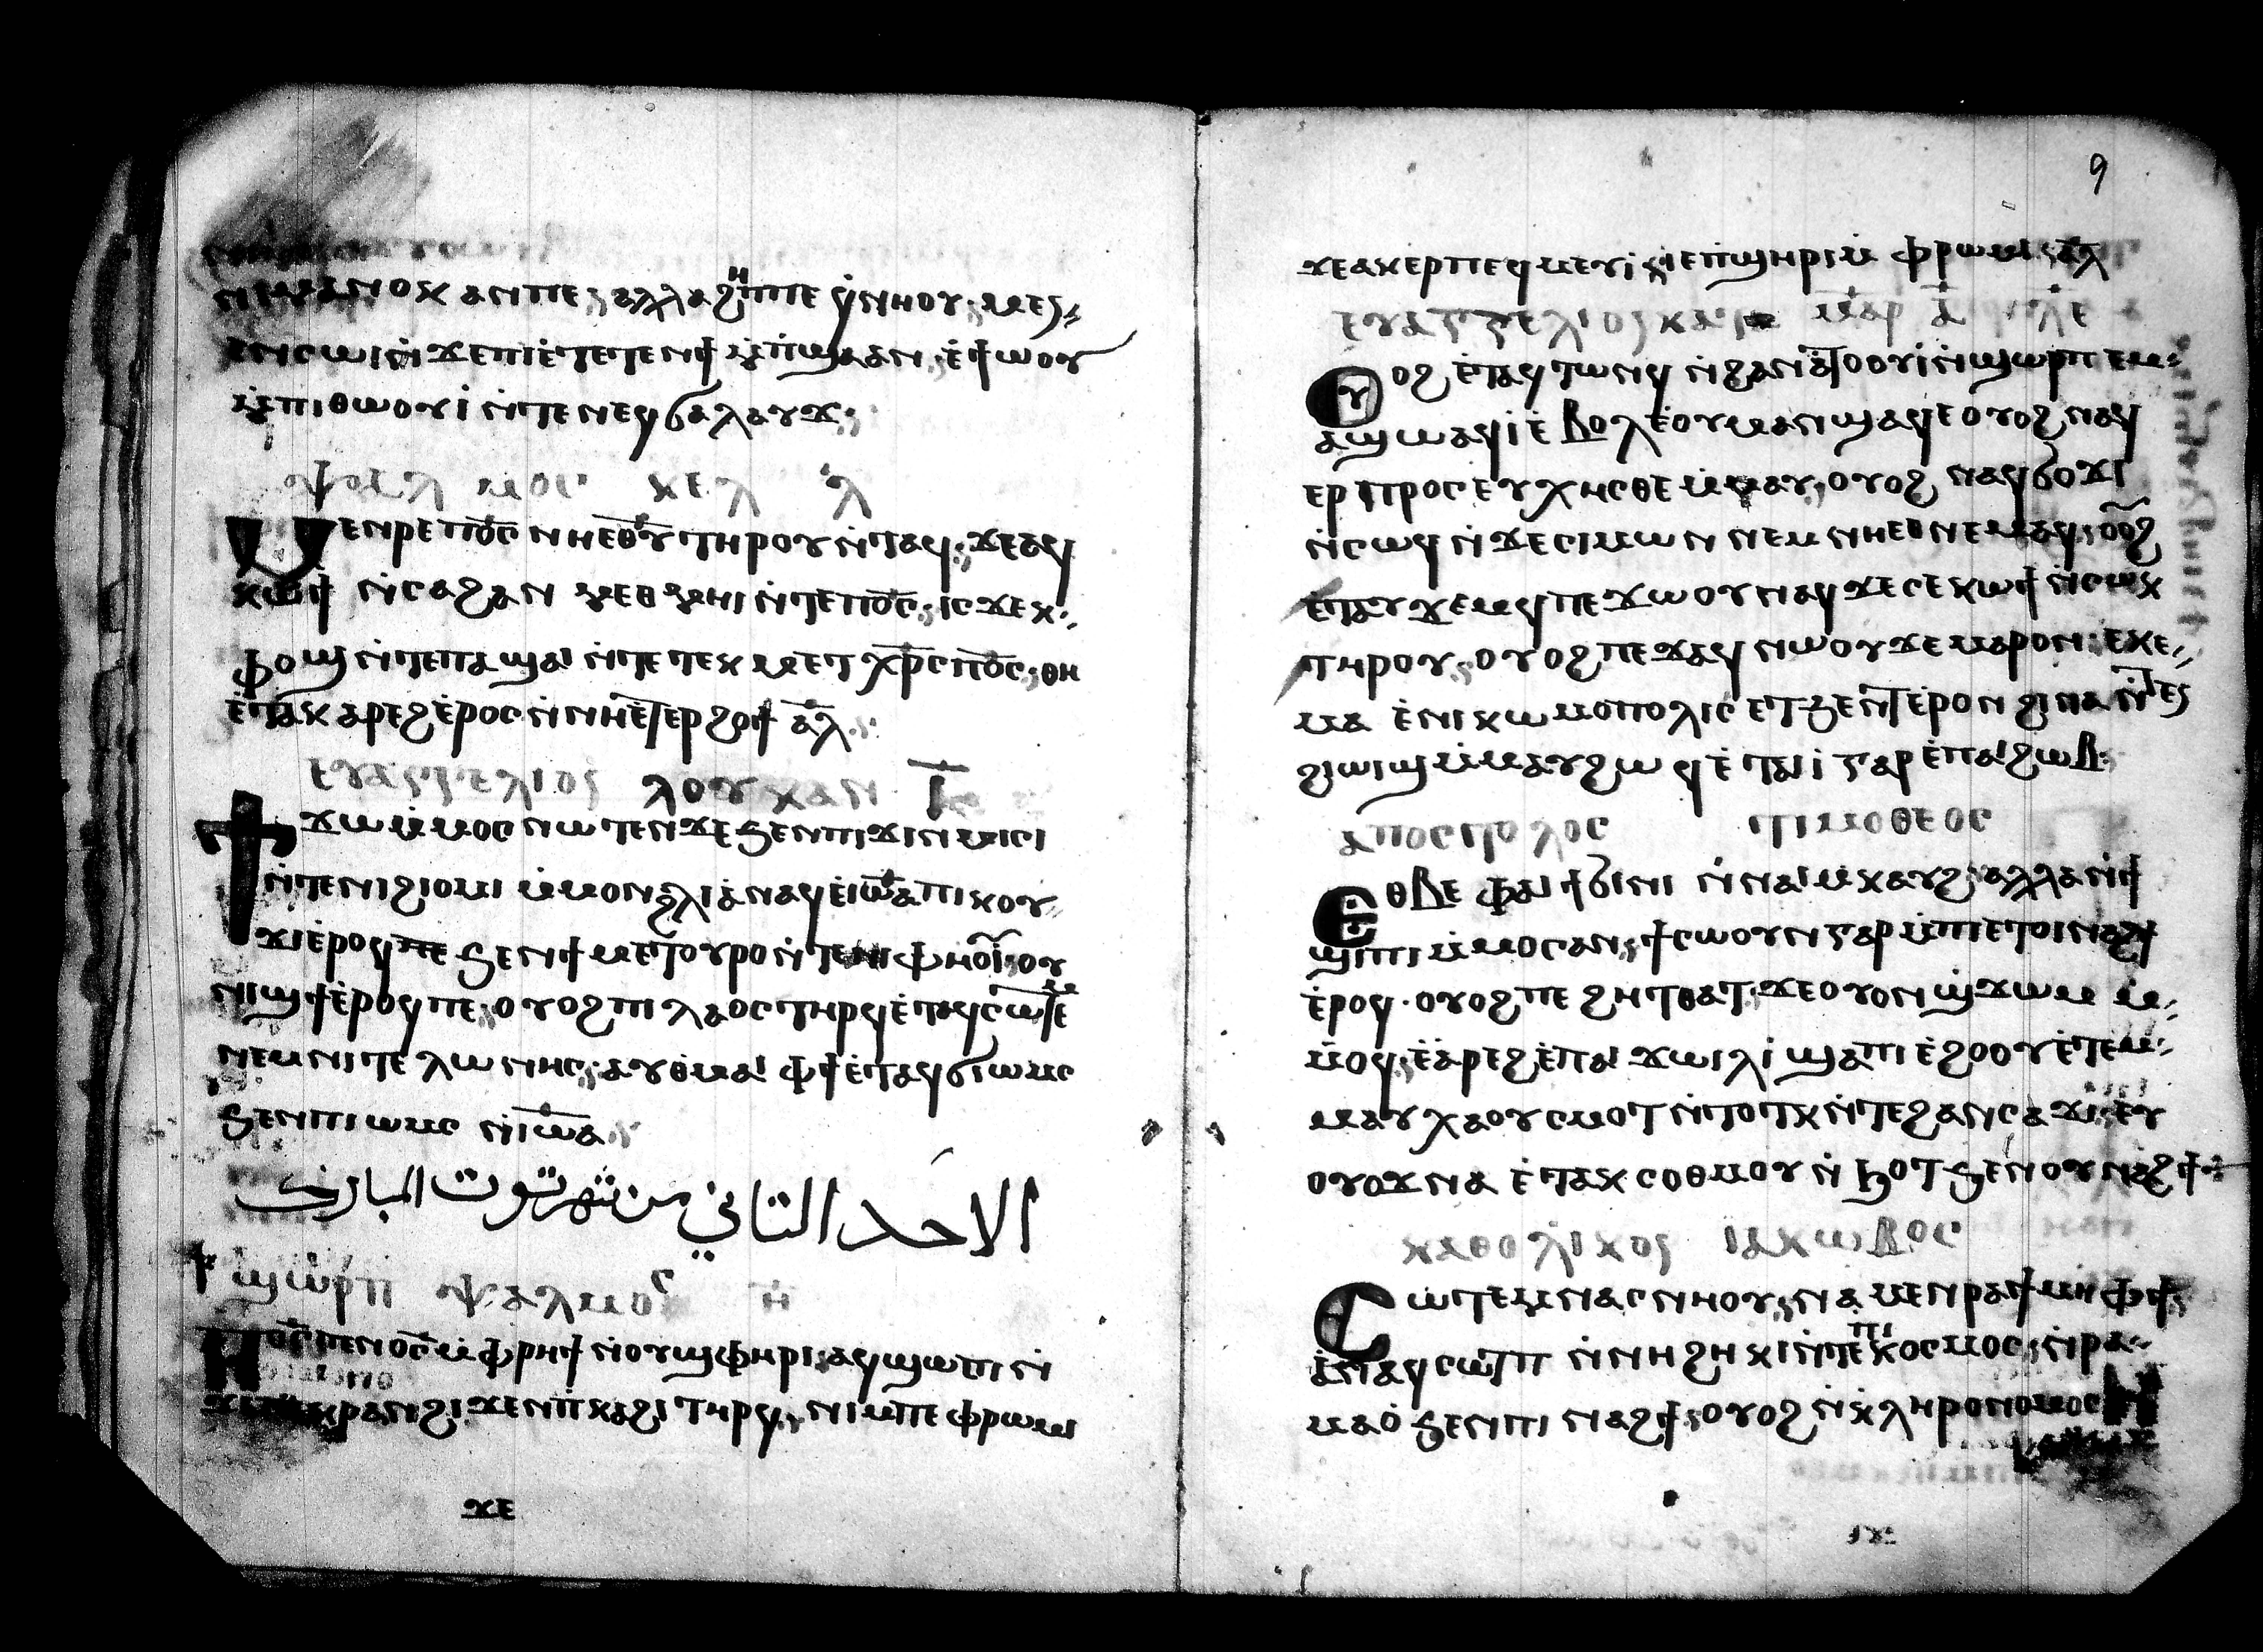 ⲛⲉⲙⲁⲛⲟⲕ ⲁⲛⲡⲉ ⲁⲗⲗⲁ ϩⲏⲡⲡⲉ ϥⲛⲏⲟⲩ ⲙⲉⲥ
ⲉⲛⲥⲱⲓ ⲛ̀ϫⲉⲡⲓⲉ̀ⲧⲉⲧⲉⲛϯ ⲙ̀ⲡϣⲁ ⲁⲛ ⲉ̀ϯⲱⲟⲩ
ⲙ̀ⲡⲓⲑⲱⲟⲩⲓ̀ ⲛ̀ⲧⲉⲛⲉϥϭⲁⲗⲁⲩϫ
ⲯⲁⲗⲙⲟⲥ ⲕⲉⲗ ⲗ̄
ⲙⲉⲛⲣⲉ ⲡⲟ̄ⲥ̄ ⲛⲏⲉⲑⲩ ⲧⲏⲣⲟⲩ ⲛ̀ⲧⲁϥ ϫⲉⲁϥ
ⲕⲱϯ ⲛ̀ⲥⲁϩⲁⲛ ⲙⲉⲑⲙⲏⲓ ⲛ̀ⲧⲉⲡⲟ̄ⲥ̄ ⲓⲥϫⲉⲕ
ⲫⲟϣ ⲛ̀ⲧⲉⲡⲁϣⲁⲓ ⲛ̀ⲧⲉ ⲧⲉⲕ ⲙⲉⲧⲭⲣ̄ⲥ ⲡⲟ̄ⲥ̄ ⲑⲏ
ⲉ̀ⲧⲁⲕ ⲁⲣⲉϩ ⲉ̀ⲣⲟⲥ ⲛ̀ⲛⲏⲉ̀ⲧⲉⲣϩⲟϯ ⲁ̄ⲗ̄
ⲉⲩⲁⲅⲅⲉⲗⲓⲟⲥ ⲗⲟⲩⲕⲁⲛ ⲓ̄
ϯϫⲱ ⲙ̀ⲙⲟⲥ ⲛⲱⲧⲉⲛ ϫⲉ ϧⲉⲛⲡⲓϫⲓⲛⲙⲓⲥⲓ
ⲛ̀ⲧⲉⲛⲓϩⲓⲟⲙⲓ ⲙ̀ⲙⲟⲛ ϩⲗⲓ ⲁ̀ⲛⲁϥ ⲉ̀ⲓⲱ̄ⲁ ⲡⲓⲕⲟⲩ
ϫⲓ ⲉ̀ⲣⲟϥ ⲡⲉ ϧⲉⲛϯⲙⲉⲧⲟⲩⲣⲟ ⲛ̀ⲧⲉⲛⲓⲫⲏⲟⲩⲓ̀ ⲟⲩ
ⲛⲓϣϯ ⲉ̀ⲣⲟϥ ⲡⲉ ⲟⲩⲟϩ ⲡⲓⲗⲁⲟⲥ ⲧⲏⲣϥ ⲉ̀ⲧⲁϥⲥⲱⲧⲉⲙ
ⲛⲉⲙ ⲛⲓⲧⲉⲗⲱⲛⲏⲥ ⲁⲩⲑⲙⲁⲓ ⲫϯ ⲉ̀ⲧⲁϥϭⲓⲱⲙⲥ
ϧⲉⲛⲡⲓⲱⲙⲥ ⲛ̀ⲓⲱ̄ⲁ
الاحد الثاني من شهر توت المبارك
ϣⲱⲣⲡ ⲯⲁⲗⲙⲟⲥ ⲏ̄
ⲡⲟ̄ⲥ̄ ⲡⲉⲛⲟ̄ⲥ̄ ⲙ̀ⲫⲣⲏϯ ⲛ̀ⲟⲩϣⲫⲏⲣⲓ ⲁϥϣⲱⲡⲓ ⲛ̀
ϫⲉⲡⲉⲕⲣⲁⲛ ϩⲓϫⲉⲛ ⲡ̀ⲕⲁϩⲓ ⲧⲏⲣϥ ⲛⲓⲙ ⲡⲉ ⲫⲣⲱⲙⲓ
ϫⲉ
9
ϫⲉⲁⲕⲉⲣⲡⲉϥⲙⲉⲩⲓ̀ ⲓⲉ ⲡ̀ϣⲏⲣⲓ ⲙ̀ⲫⲣⲱⲙⲓ ⲁ̄ⲗ̄
ⲉⲩⲁⲅⲅⲉⲗⲓⲟⲥ ⲕⲁⲧⲁ ⲙⲁⲣ ⲁ̄ ⲗ̄ⲉ
ⲟⲩⲟϩ ⲉ̀ⲧⲁϥⲧⲱⲛϥ ⲛ̀ϩⲁⲛⲁ̀ⲧⲟⲟⲩⲓ̀ ⲛ̀ϣⲱⲣⲡ ⲉⲙ
ⲁϣⲱ ⲁϥⲓ̀ ⲉ̀ⲃⲟⲗ ⲉ̀ⲟⲩⲙⲁ ⲛ̀ϣⲁϥⲉ ⲟⲩⲟϩ ⲛⲁϥ
ⲉⲣⲡⲣⲟⲥⲉⲩⲭⲏⲥⲑⲉ ⲙ̀ⲙⲁⲩ ⲟⲩⲟϩ ⲛⲁϥϭⲟϫⲓ
ⲛ̀ⲥⲱϥ ⲛ̀ϫⲉⲥⲓⲙⲱⲛ ⲛⲉⲙ ⲛⲏⲉⲑⲛⲉⲙⲁϥ ⲟⲟϩ
ⲉ̀ⲧⲁⲩϫⲉⲙϥ ⲡⲉϫⲱⲟⲩ ⲛⲁϥ ϫⲉ ⲥⲉⲕⲱϯ ⲛ̀ⲥⲱⲕ
ⲧⲏⲣⲟⲩ ⲟⲩⲟϩ ⲡⲉϫⲁϥ ⲛⲱⲟⲩ ϫⲉ ⲙⲁⲣⲟⲛ ⲉⲕⲉ
ⲙⲁ ⲉ̀ⲛⲓⲕⲱⲙⲟⲡⲟⲗⲓⲥ ⲉⲧϧⲉⲛⲧ ⲉ̀ⲣⲟⲛ ϩⲓⲛⲁ ⲛ̀ⲧⲉⲥ
ϩⲓⲱⲓϣ ⲙ̀ⲙⲁⲩ ϩⲱϥ ⲉ̀ⲧⲁⲓⲓ̀ ⲅⲁⲣ ⲉ̀ⲡⲁⲓϩⲱⲃ
ⲁⲡⲟⲥⲧⲟⲗⲟⲥ ⲧⲓⲙⲟⲑⲉⲟⲥ
ⲉⲑⲃⲉ ⲫⲁⲓ ϯϭⲓⲛⲓ ⲛ̀ⲛⲁⲓ ⲙ̀ⲕⲁⲩϩ ⲁⲗⲗⲁ ⲛ̀ϯ
ϣⲓⲡⲓ ⲙ̀ⲙⲟⲥ ⲁⲛ ϯⲥⲱⲟⲩⲛ ⲅⲁⲣ ⲙ̀ⲡⲉⲧⲟⲓⲛⲁϩϯ
ⲉ̀ⲣⲟϥ ⲟⲩⲟϩ ⲡⲉ ϩⲏⲧ ⲑⲁⲧ ϫⲉ ⲟⲩⲟⲛ ϣϫⲱⲙ ⲙ̀
ⲙ̀ⲟϥ ⲉ̀ⲁ̀ⲣⲉϩ ⲉ̀ⲡⲁ ϫⲱⲓⲗⲓ ϣⲁ ⲡⲓⲉ̀ϩⲟⲟⲩ ⲉ̀ⲧⲉⲙ
ⲙⲁⲩ ⲭⲁⲟⲩⲥⲙⲟⲧ ⲛ̀ⲧⲟⲧⲕ ⲛ̀ⲧⲉϩⲁⲛⲥⲁϫⲓ ⲉⲩ
ⲟⲩⲟϫ ⲛⲁ ⲉ̀ⲧⲁⲕⲥⲟⲑⲙⲟⲩ ⲛ̀ϧⲟⲧ ϧⲉⲛⲟⲩⲛⲁϩϯ
ⲕⲁⲑⲟⲗⲓⲕⲟⲥ ⲓⲁⲕⲱⲃⲟⲥ
ⲥⲱⲧⲉⲙ ⲛⲁⲥⲛⲏⲟⲩ ⲛⲁⲙⲉⲛⲣⲁϯ ⲙⲏ ⲫϯ
ⲉ̀ⲧⲁϥⲥⲱⲧⲡ ⲛ̀ⲛⲏϩⲏⲕⲓ ⲛ̀ⲧⲉⲡⲓⲕⲟⲥⲙⲟⲥ ⲛ̀ⲣⲁ
ⲙⲁⲟ̀ ϧⲉⲛⲡⲓⲛⲁϩϯ ⲟⲩⲟϩ ⲛ̀ⲕⲗⲏⲣⲟⲛⲟⲙⲟⲥ